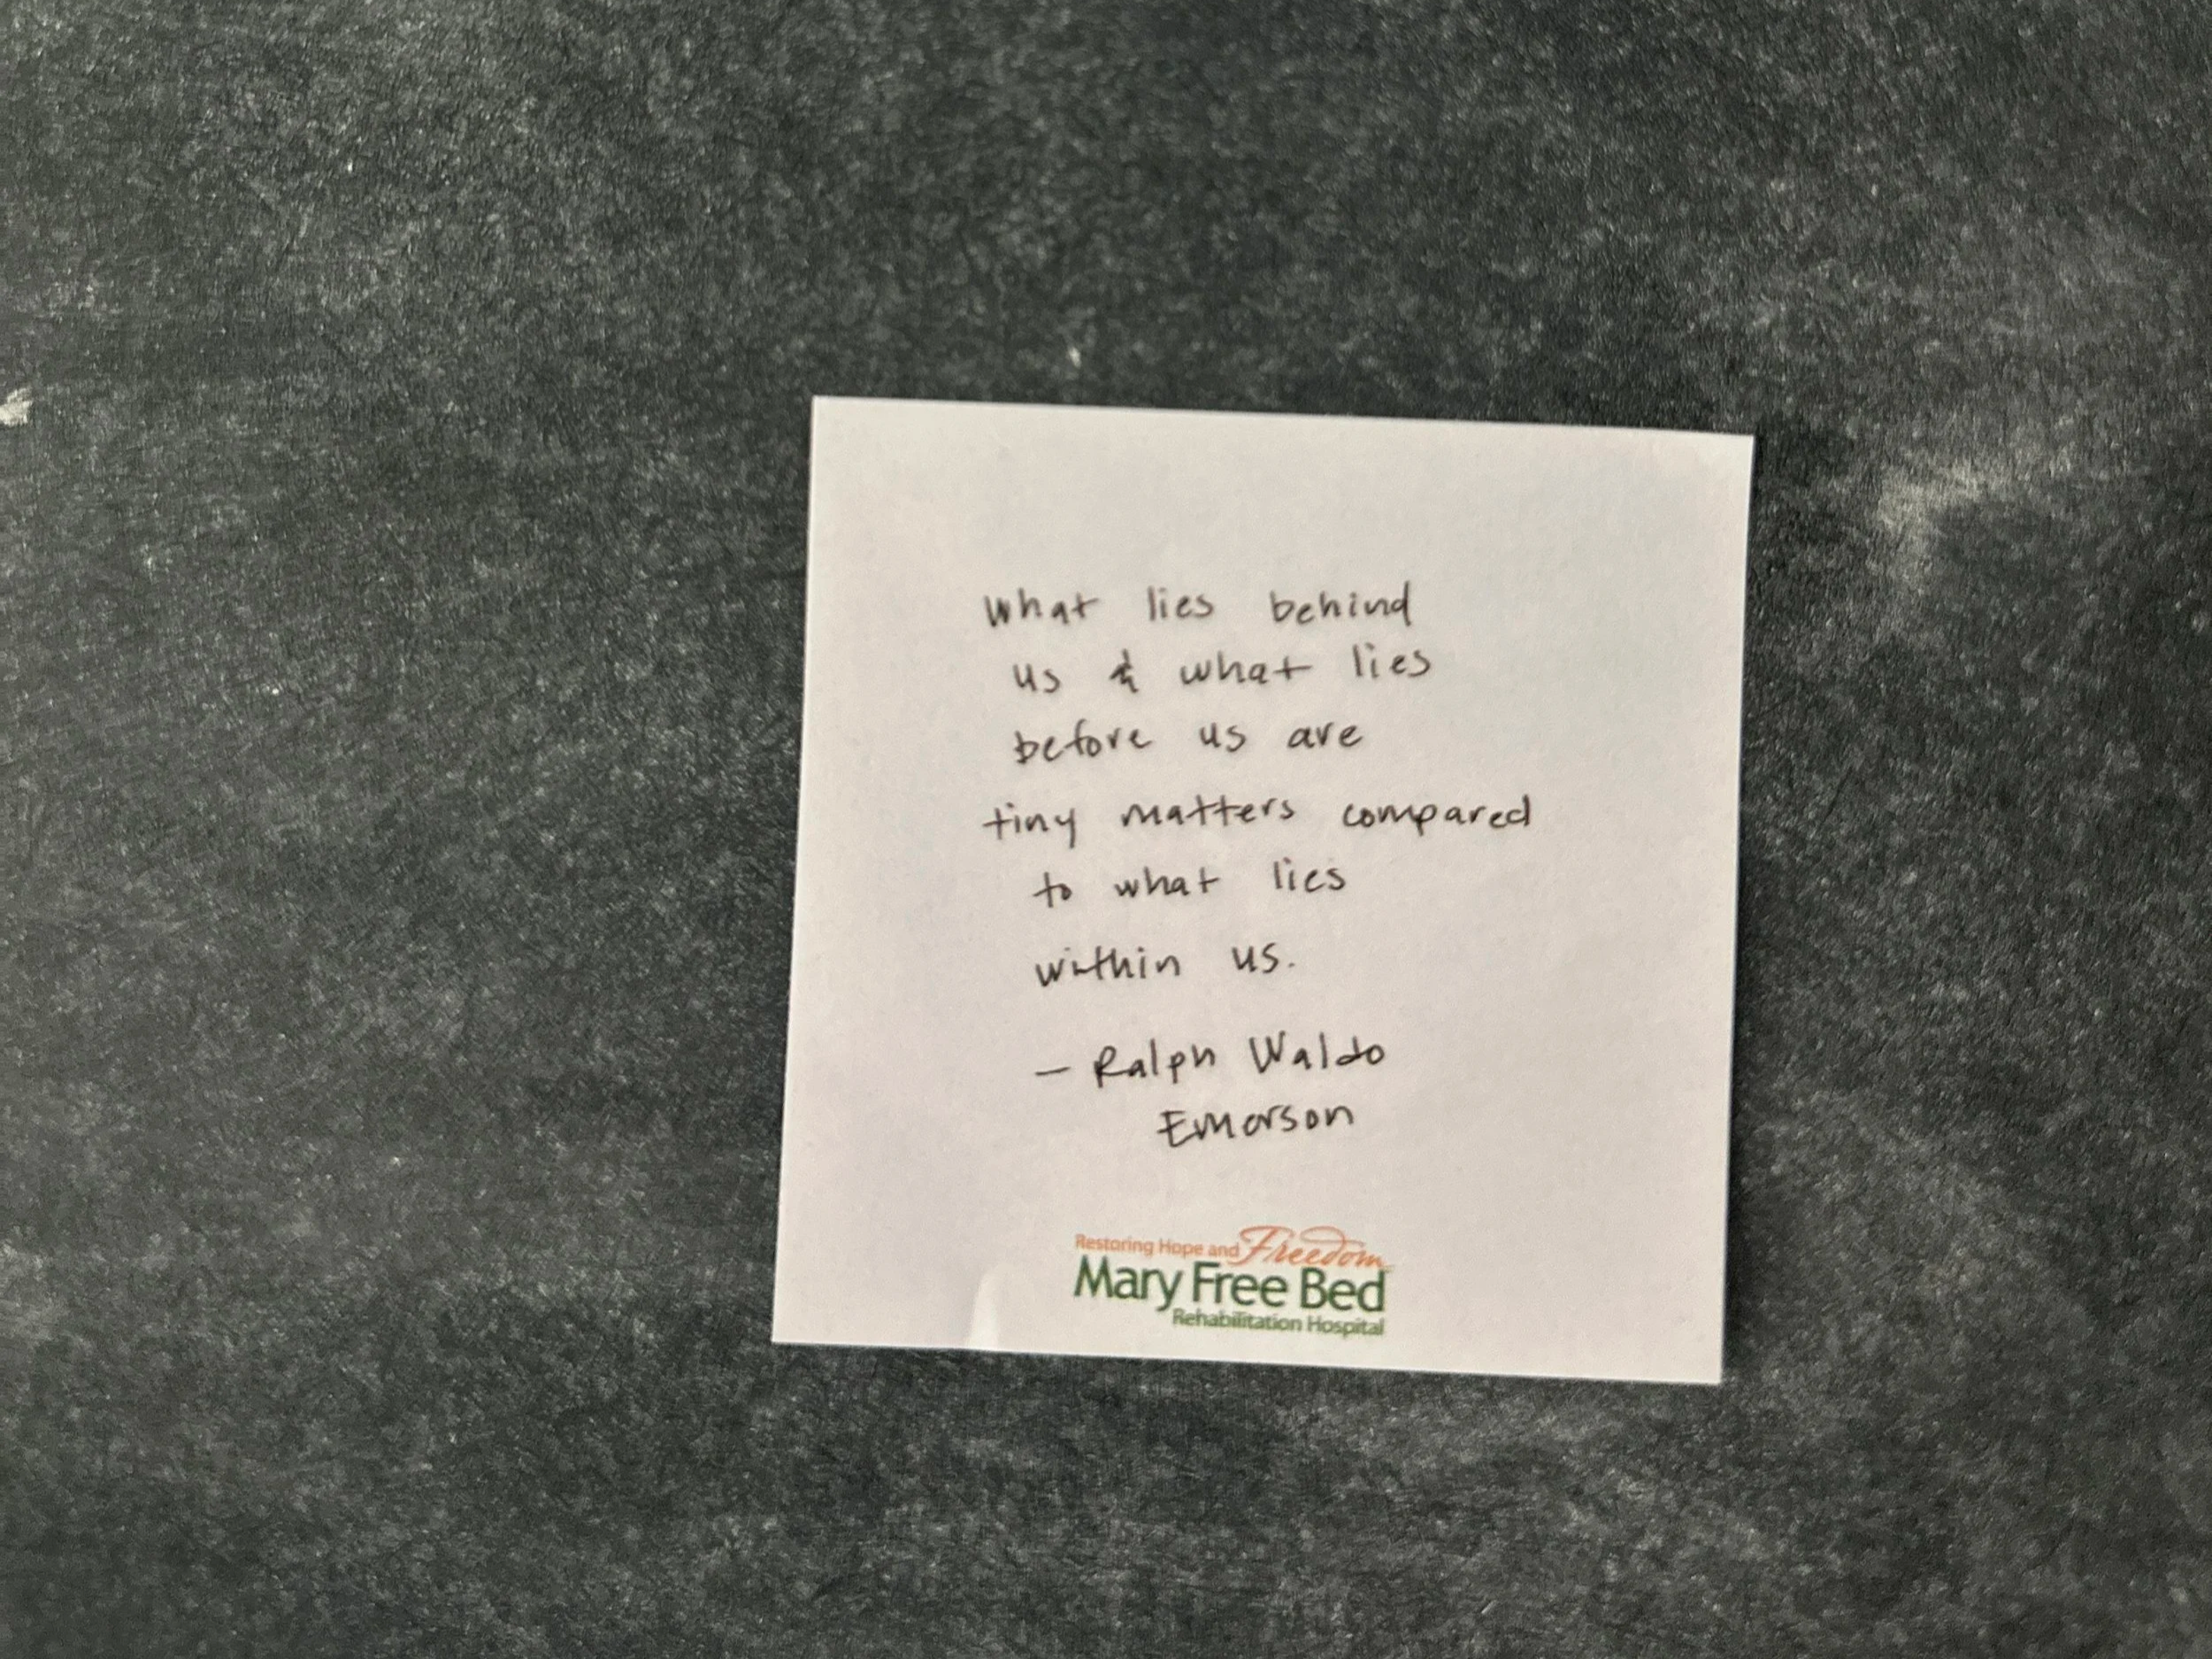 What lies behind
us & what lies
before us are
tiny matters compared
to what lies
within us.
— Ralph Waldo
Emerson
Restoring Hope and Freedom
Mary Free Bed
Rehabilitation Hospital